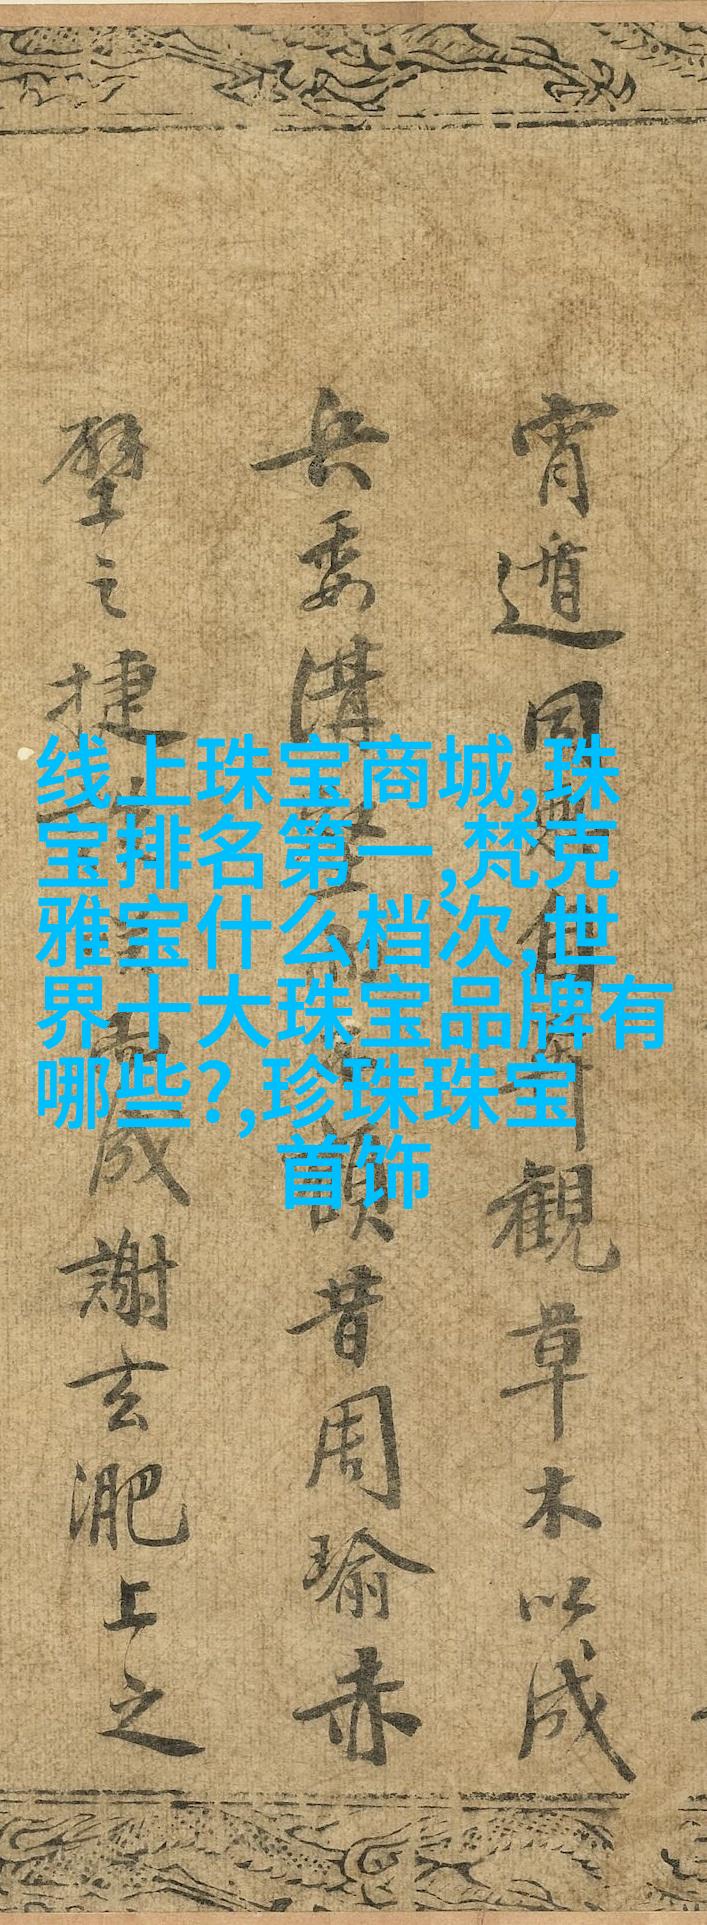 线上珠宝商城,珠
宝排名第一,梵克
雅宝什么档次,世
界十大珠宝品牌有
哪些?,珍珠珠宝
首饰
宵遁同觀草木以成
兵委溝昔周瑜赤
壁之捷成謝玄淝上之